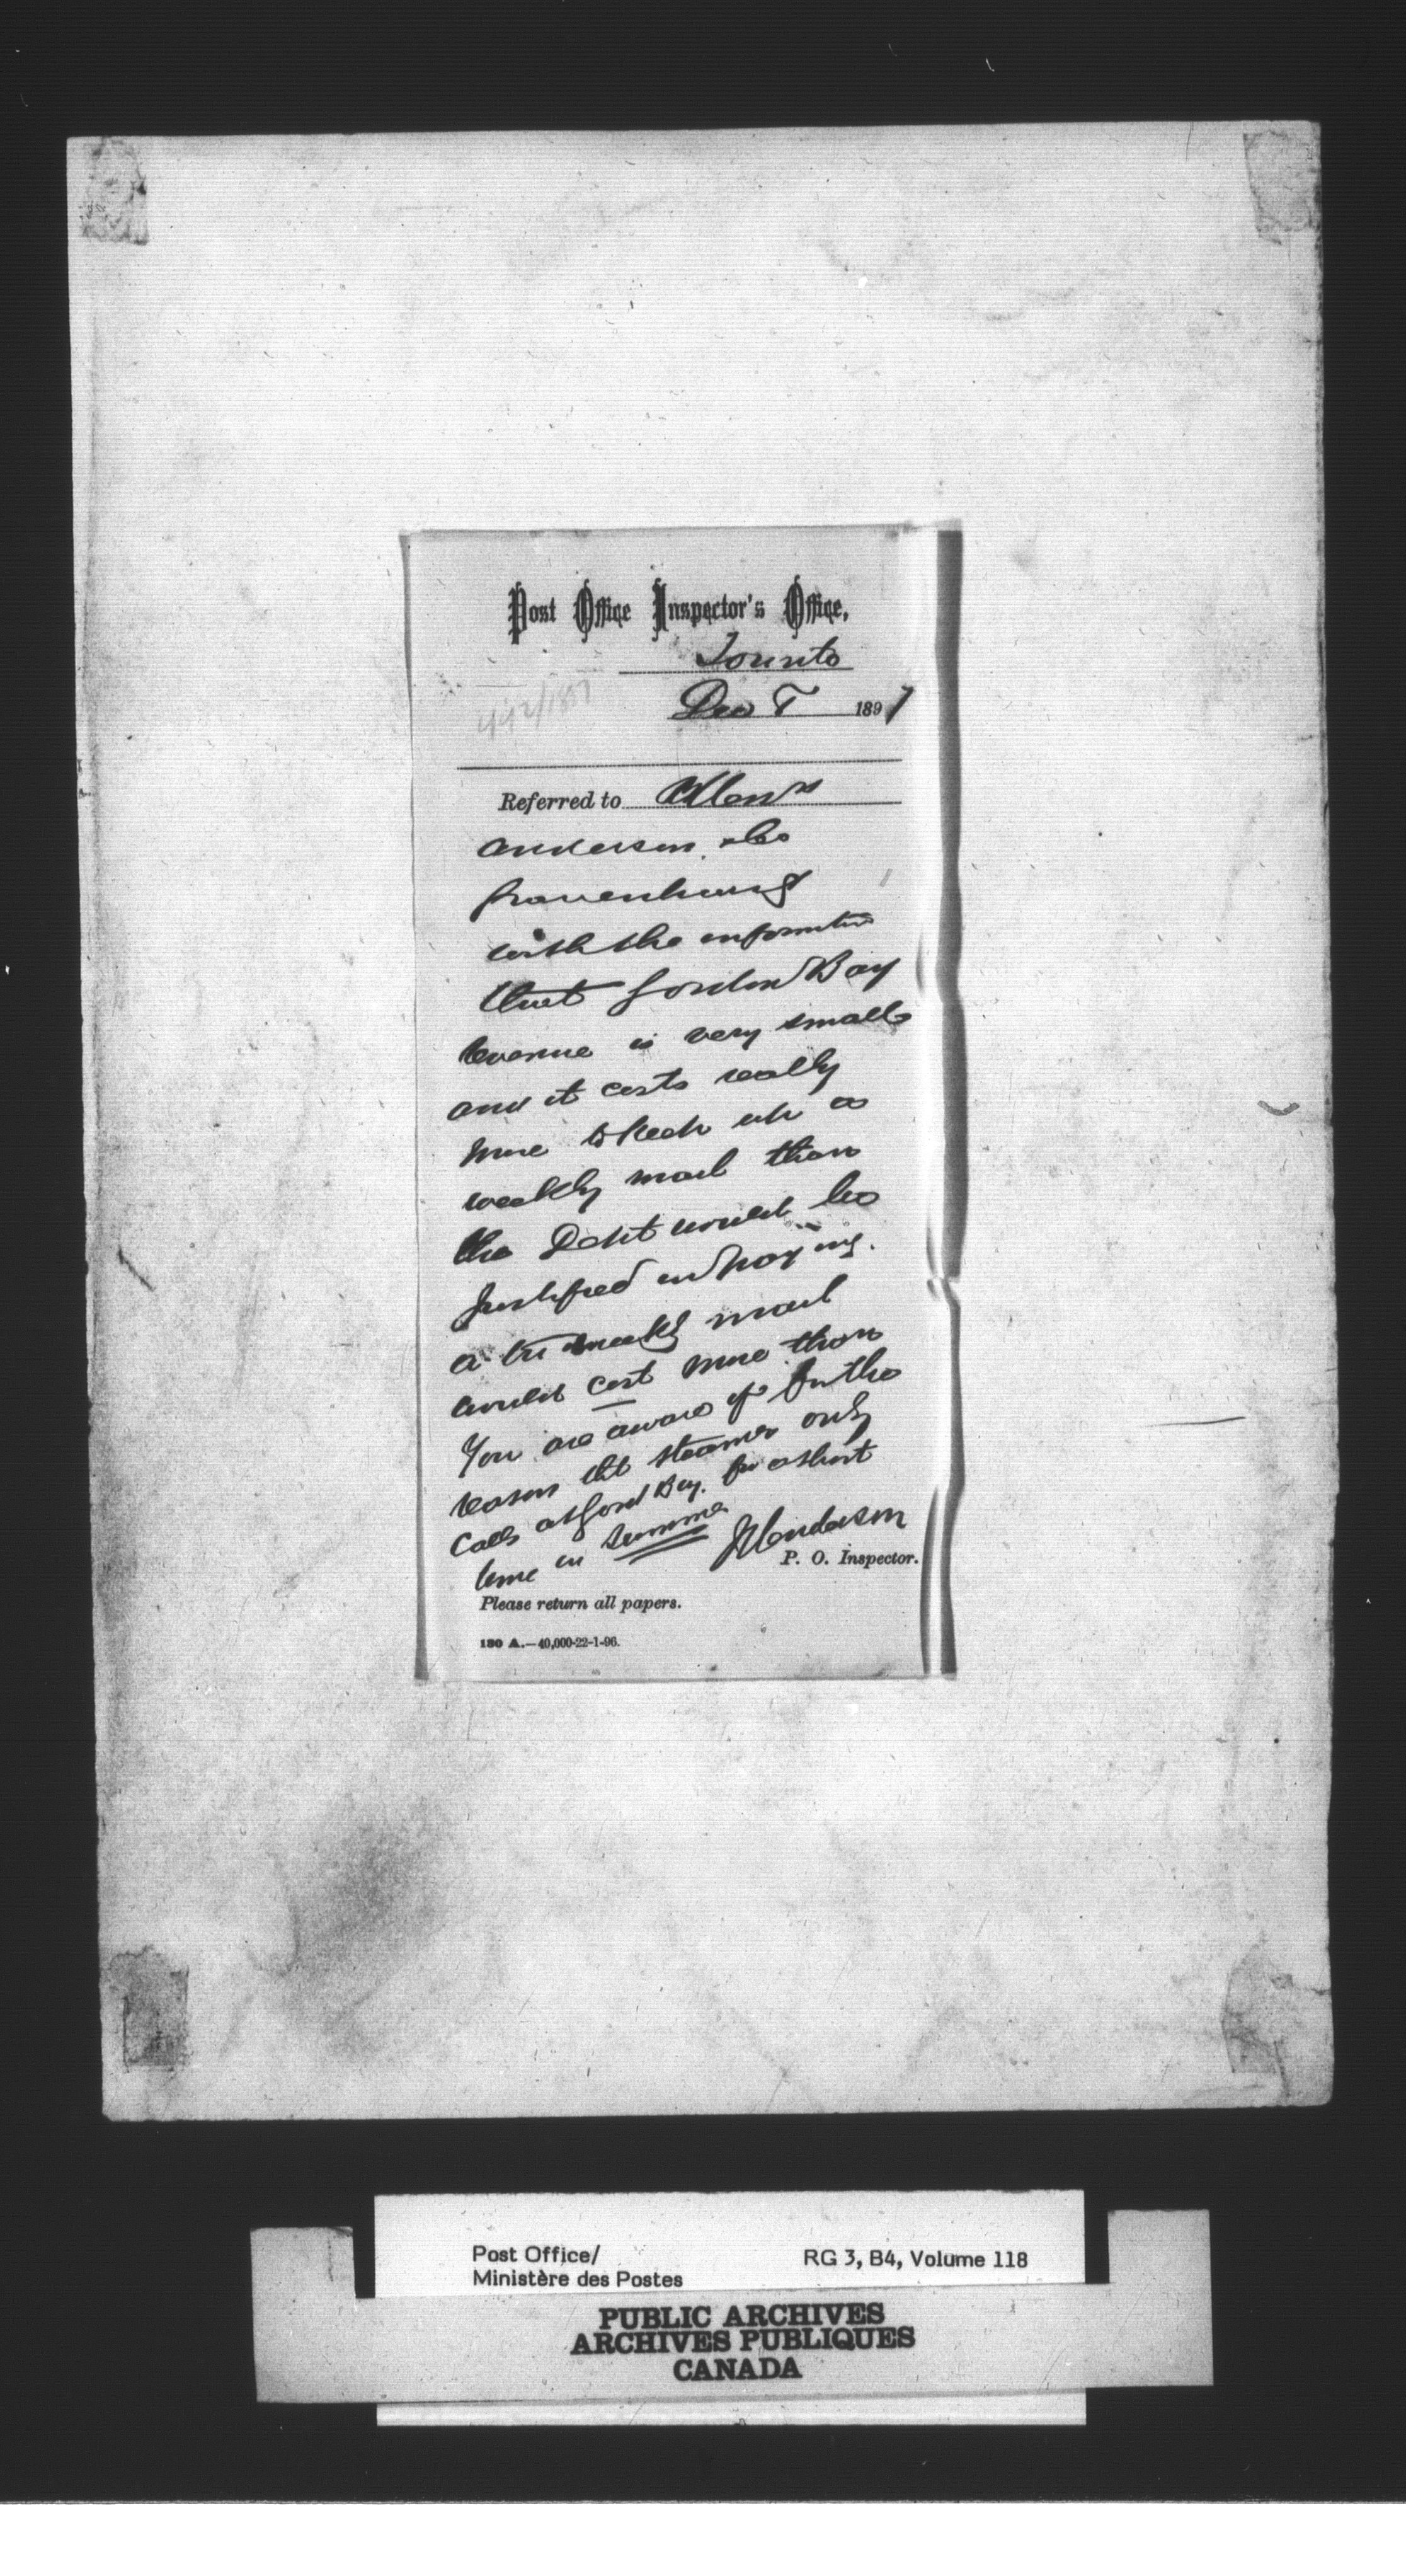 Post Office Inspector's Office,
Toronto
Dec 8 1897
442/1897
Referred to
Anderson & Co
Gravenhurst
with the information
that Gordon Bay
revenue is very small
and it costs really
more to keep up a
weekly mail than
the Dept would be
justified in paying.
a tri weekly mail
would cost more than
You are aware of for the
reason tht steamer only
Calls at Gord Bay. for a short
time in Summer
JHenderson
P. O. Inspector.
Please return all papers.
180 A.—40,000-22-1-96.
Post Office/ RG 3, B4, Volume 118
Ministère des Postes
PUBLIC ARCHIVES
ARCHIVES PUBLIQUES
CANADA